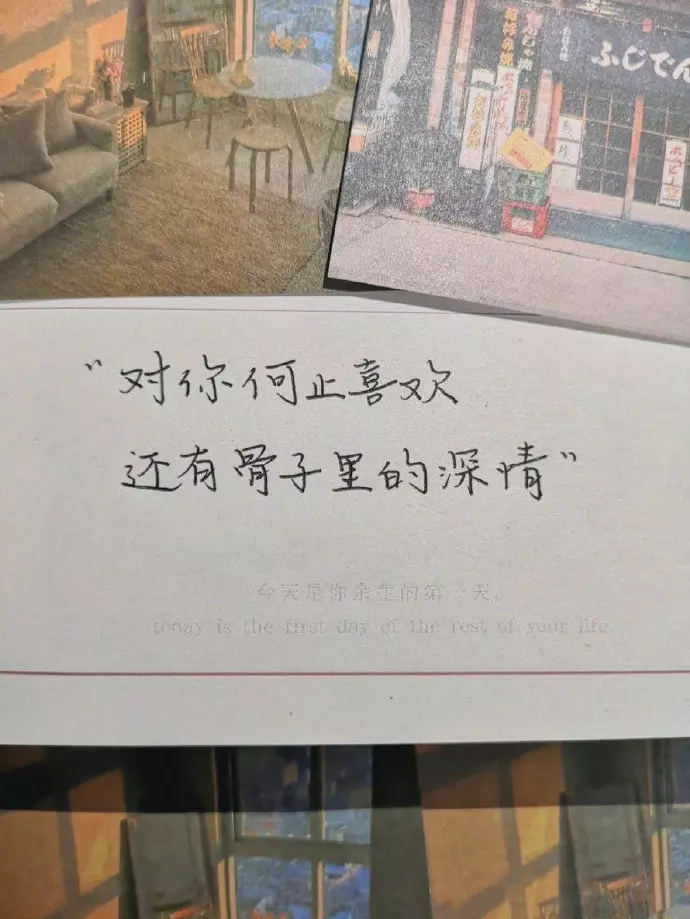 ふじでん
"对你何止喜欢
还有骨子里的深情"
今天是你余生的第一天,
today is the first day of the rest of your life.